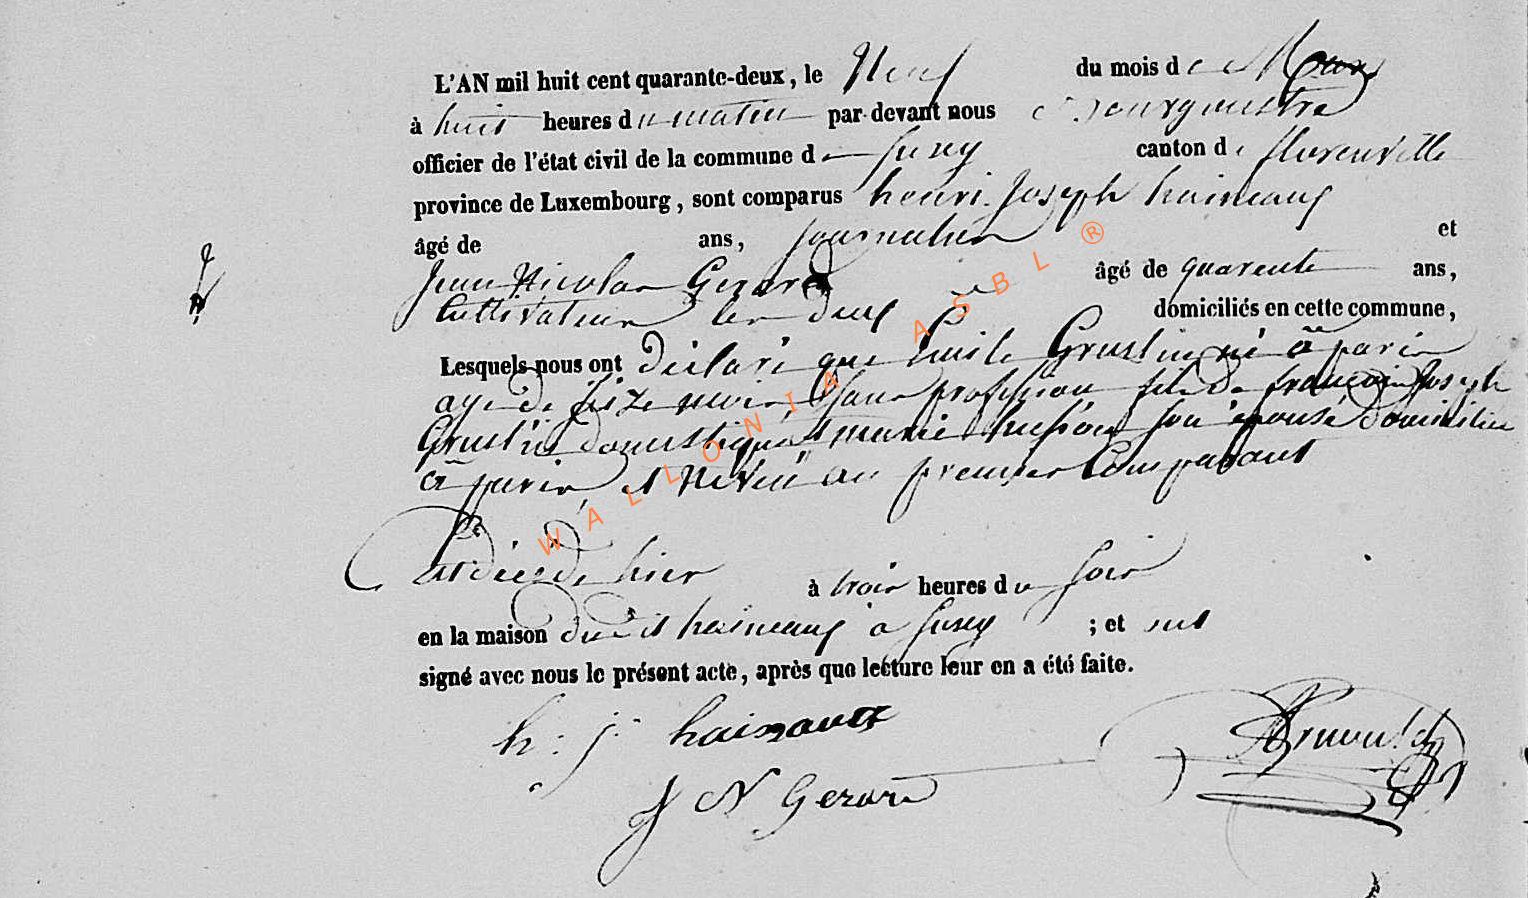 L'AN mil huit cent quarante-deux, le Neuf du mois de Mars
à huit heures du matin par devant nous Bourgmestre
officier de l'état civil de la commune de Suxy canton de florenville
province de Luxembourg, sont comparus henri Joseph hainaux
âgé de ans, journalier et
Jean Nicolas Gerard âgé de quarente ans,
Cultivateur les deux domiciliés en cette commune,
Lesquels nous ont déclaré que Emile Gruslin né à paris
agé de seize mois, sans profession fils de françois Joseph
Gruslin domestique et marie son épouse domiciliés
à paris, et neveu au premier Comparant
est décédé hier à trois heures du soir
en la maison dudit hainaux à Suxy ; et ont
signé avec nous le présent acte, après que lecture leur en a été faite.
h: j. hainaux
J N Gerard
WALLONIA ASBL ®